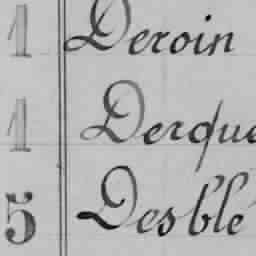 1 Deroin
1 Derque
5 Desblé